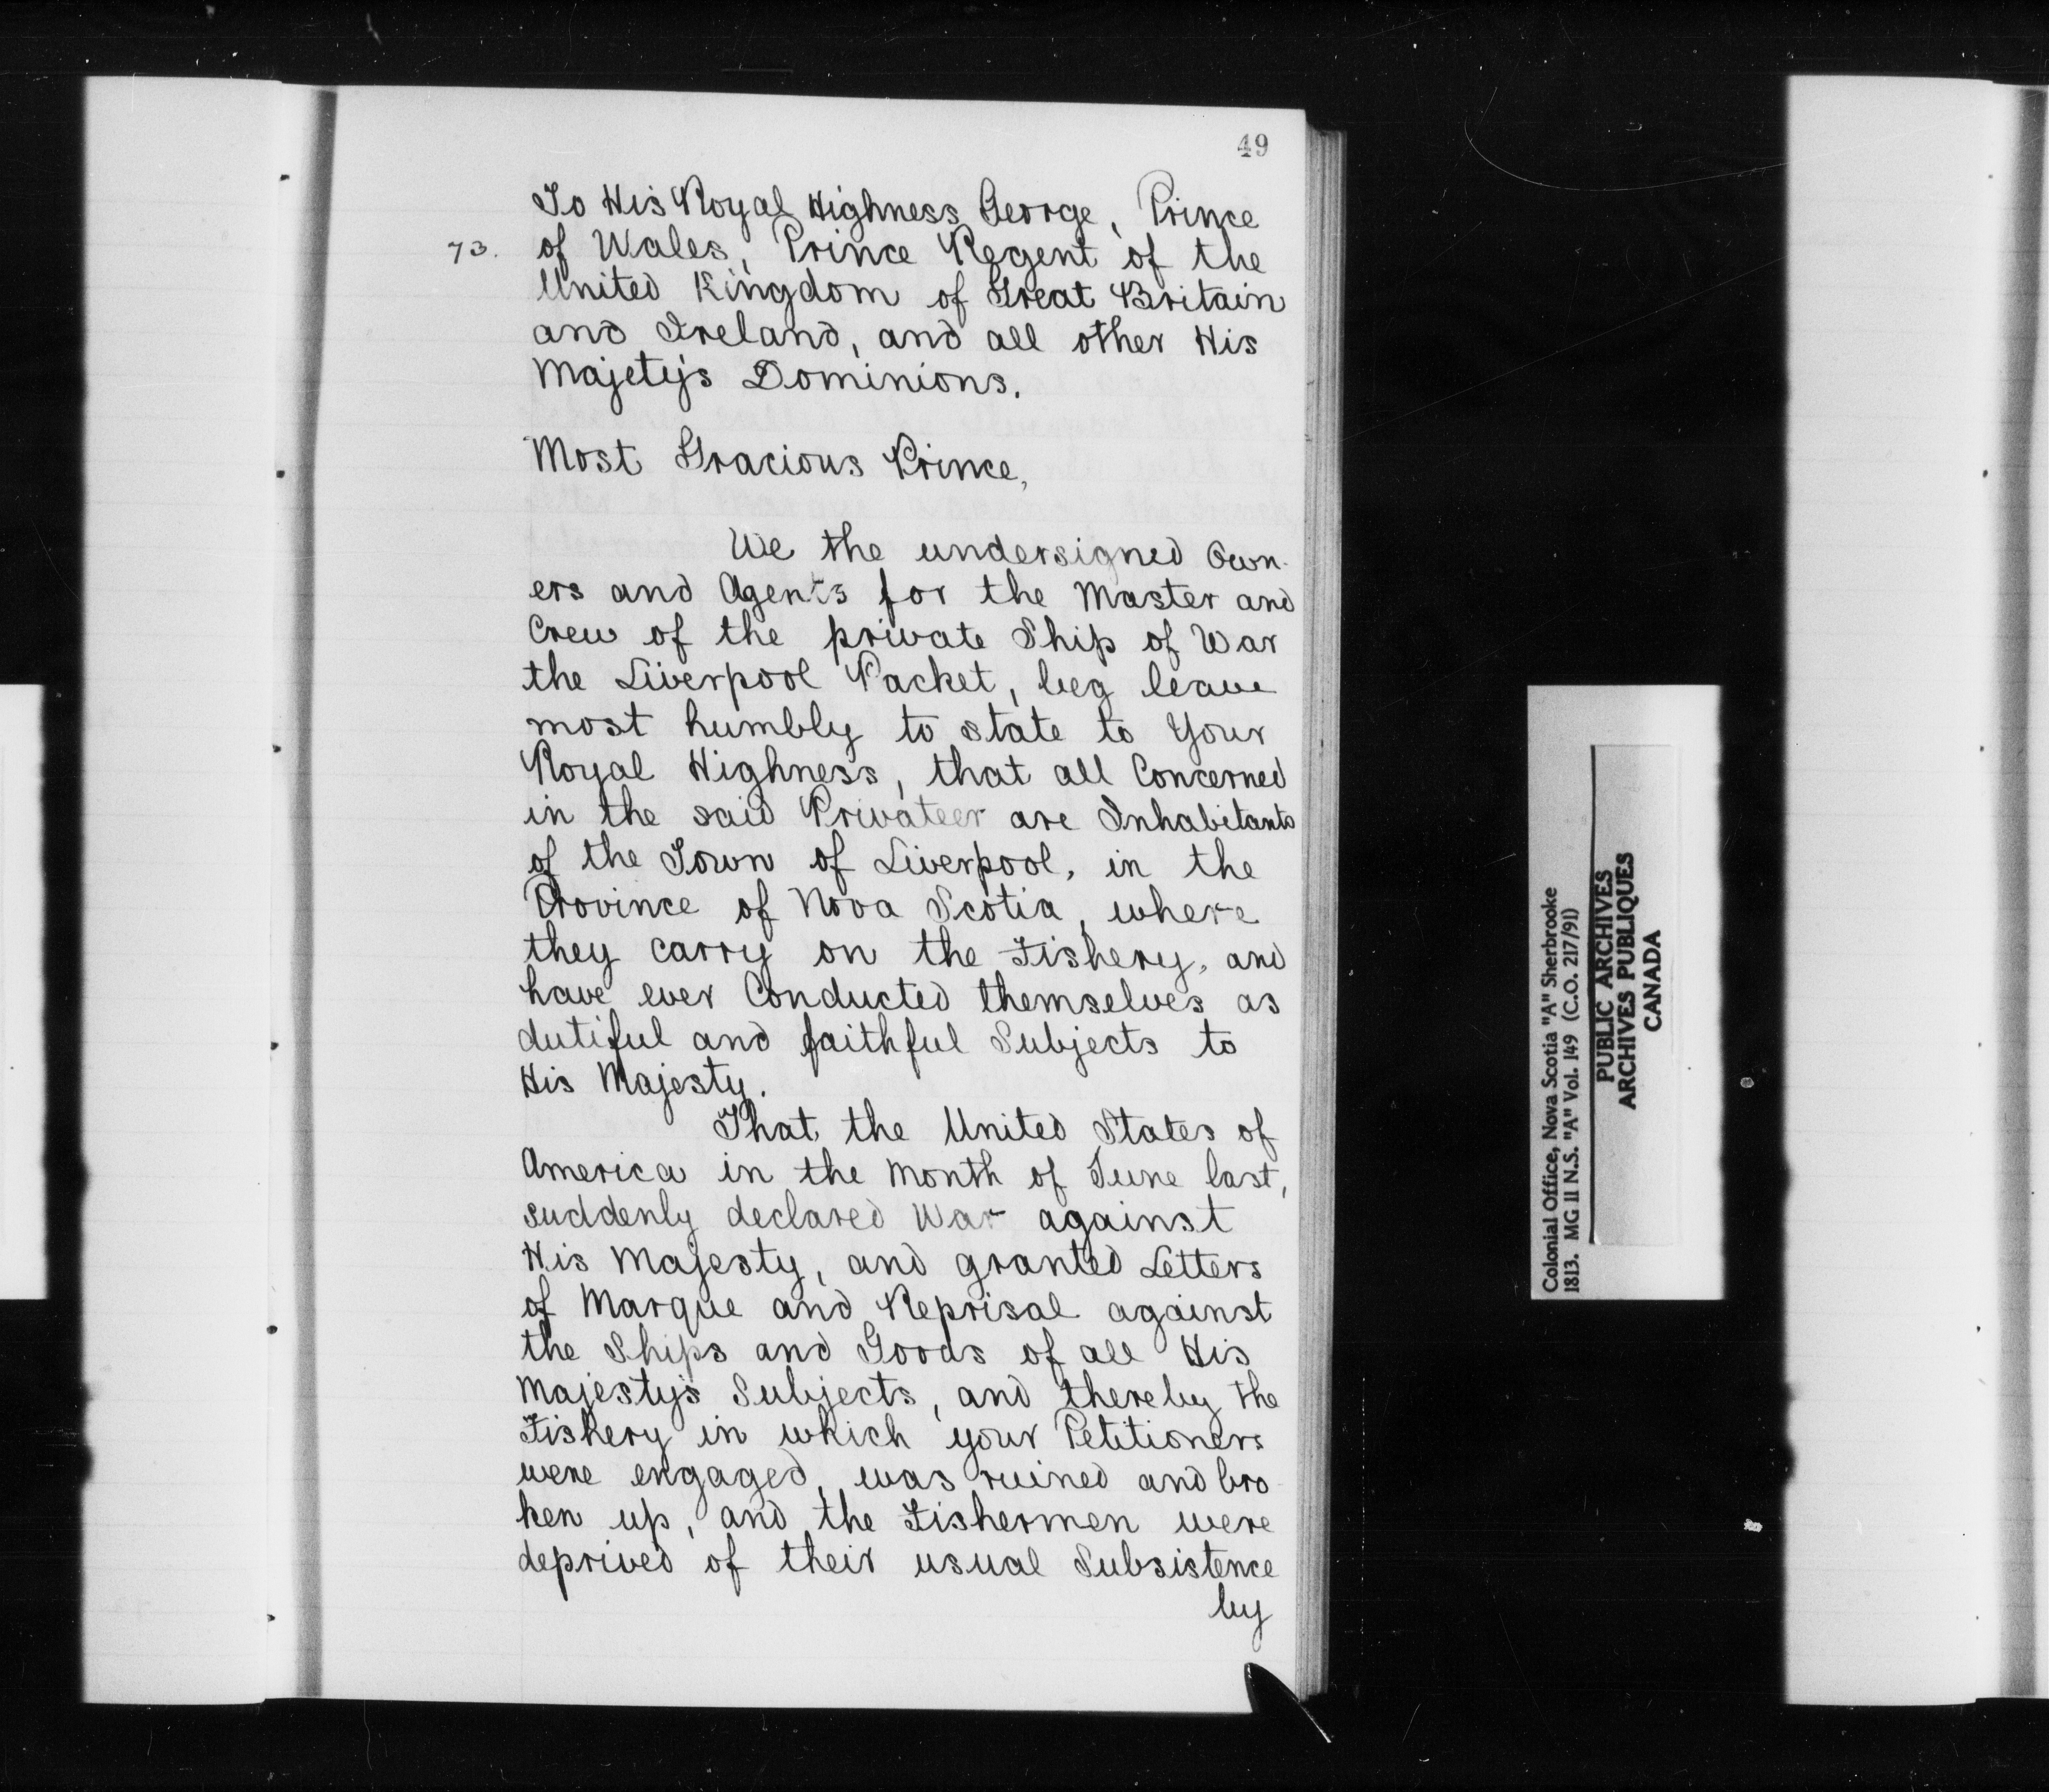 49
To His Royal Highness George, Prince
73. of Wales, Prince Regent of the
United Kingdom of Great Britain
and Ireland, and all other His
Majety's Dominions.
Most Gracious Prince,
We the undersigned Own-
ers and Agents for the Master and
Crew of the private Ship of War
the Liverpool Packet, beg leave
most humbly to state to Your
Royal Highness, that all Concerned
in the said Privateer are Inhabitants
of the Town of Liverpool, in the
Province of Nova Scotia, where
they carry on the Fishery, and
have ever Conducted themselves as
dutiful and faithful Subjects to
His Majesty.
That the United States of
America in the Month of June last,
suddenly declared War against
His Majesty, and granted Letters
of Marque and Reprisal against
the Ships and Goods of all His
Majesty's Subjects, and thereby the
Fishery in which your Petitioners
were engaged, was ruined and bro-
ken up, and the Fishermen were
deprived of their usual Subsistence
by
Colonial Office, Nova Scotia "A" Sherbrooke
1813. MG 11 N.S. "A" Vol. 149 (C.O. 217/91)
PUBLIC ARCHIVES
ARCHIVES PUBLIQUES
CANADA